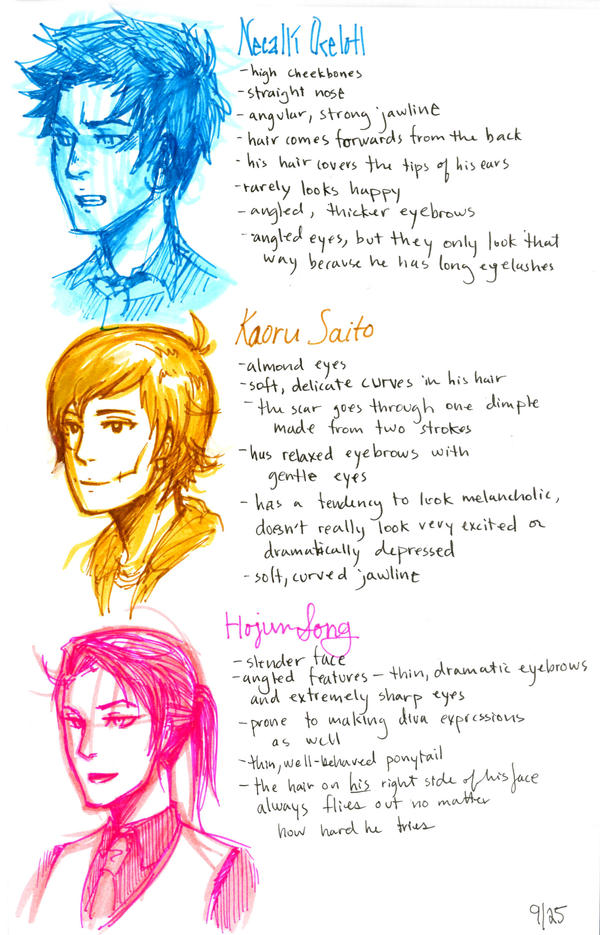 Necalli Ocelotl
- high cheekbones
- straight nose
- angular, strong jawline
- hair comes forwards from the back
- his hair covers the tips of his ears
- rarely looks happy
- angled, thicker eyebrows
- angled eyes, but they only look that
way because he has long eyelashes
Kaoru Saito
- almond eyes
- soft, delicate curves in his hair
- the scar goes through one dimple
made from two strokes
- has relaxed eyebrows with
gentle eyes
- has a tendency to look melancholic,
doesn't really look very excited or
dramatically depressed
- soft, curved jawline
Hojun Song
- slender face
- angled features - thin, dramatic eyebrows
and extremely sharp eyes
- prone to making diva expressions
as well
- thin, well-behaved ponytail
- the hair on his right side of his face
always flies out no matter
how hard he tries
9/25